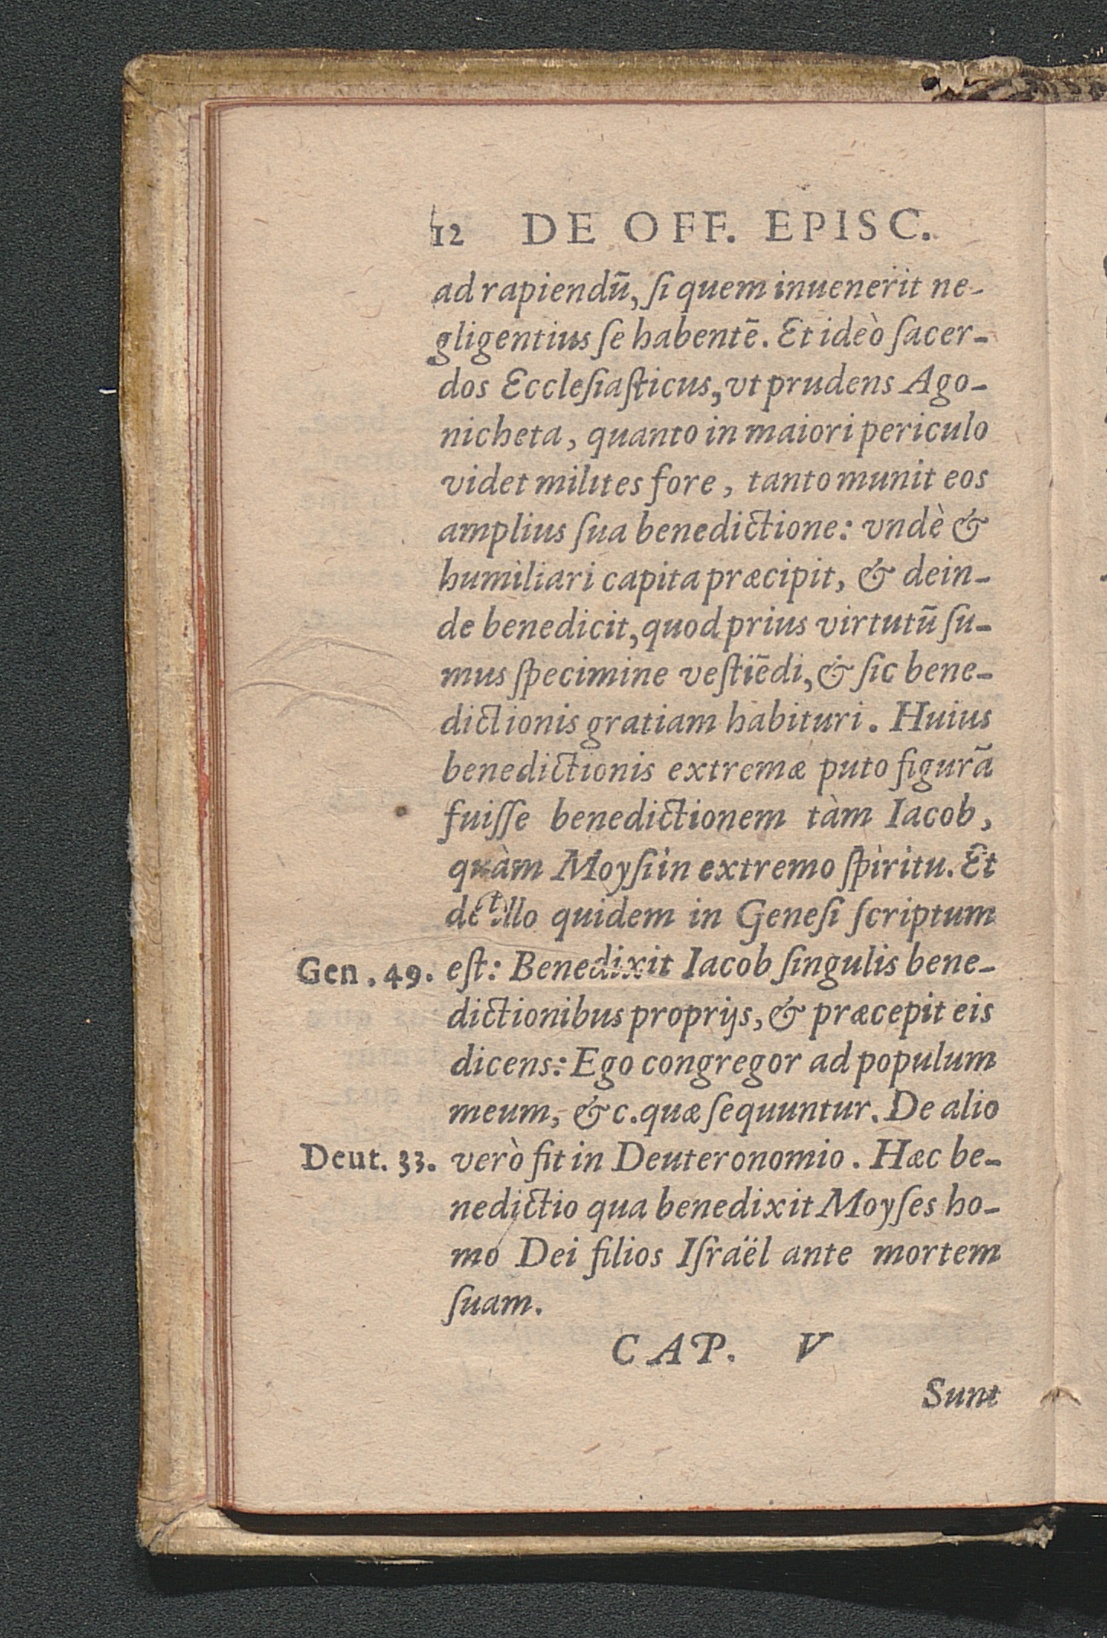 12 DE OFF. EPISC.
ad rapiendū, ſi quem inuenerit ne-
gligentius ſe habentē. Et ideò ſacer-
dos Eccleſiaſticus, vt prudens Ago-
nicheta, quanto in maiori periculo
videt milites fore, tanto munit eos
amplius ſua benedictione: vndè &
humiliari capita præcipit, & dein-
de benedicit, quod prius virtutū ſu-
mus ſpecimine veſtiēdi, & ſic bene-
dictionis gratiam habituri. Huius
benedictionis extremæ puto figurā
fuiſſe benedictionem tàm Iacob,
quàm Moyſi in extremo ſpiritu. Et
de illo quidem in Geneſi ſcriptum
Gen. 49. eſt: Benedixit Iacob ſingulis bene-
dictionibus proprijs, & præcepit eis
dicens: Ego congregor ad populum
meum, &c. quæ ſequuntur. De alio
Deut. 33. verò fit in Deuteronomio. Hæc be-
nedictio qua benedixit Moyſes ho-
mo Dei filios Iſraël ante mortem
ſuam.
CAP. V
Sunt